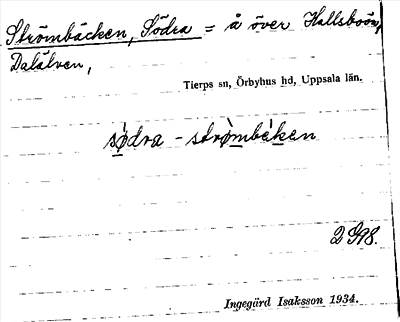 Strömbäcken, Södra = å över Hallsboön,
Dalälven,
Tierps sn, Örbyhus hd, Uppsala län.
sǿdra - strømbèken
Ingegärd Isaksson 1934.